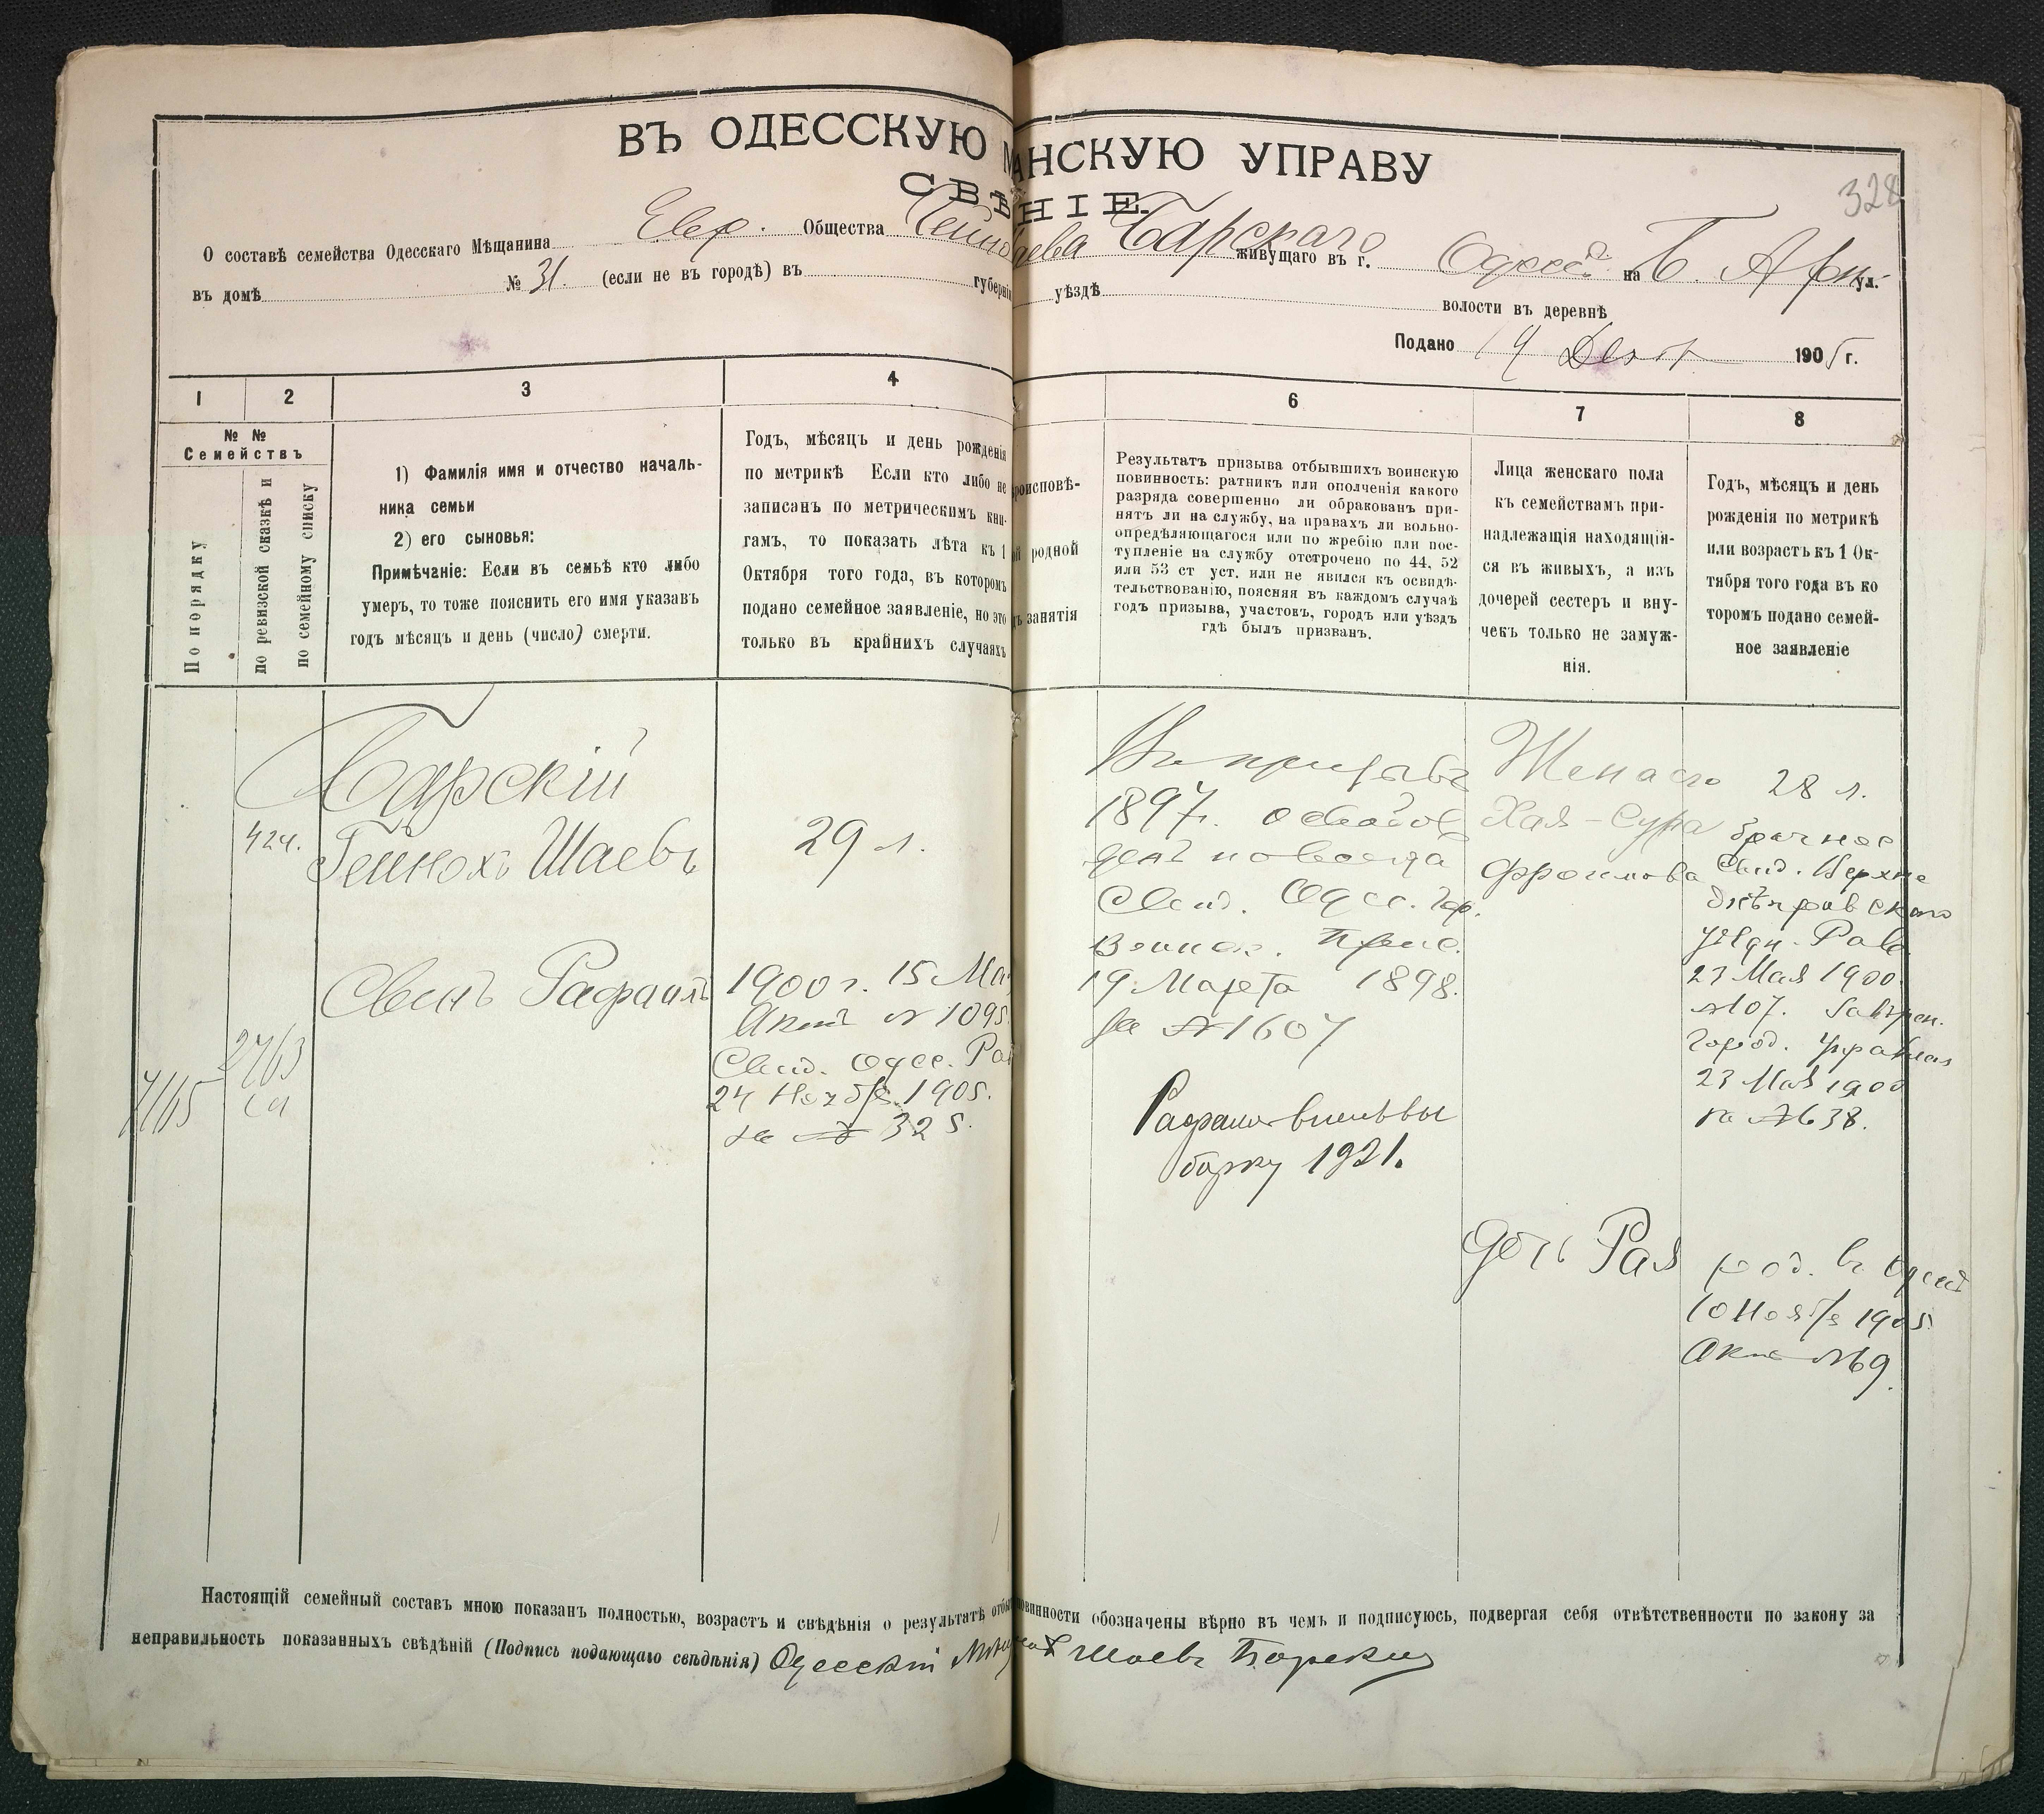 328
ВЪ ОДЕССКУЮ М АНСКУЮ УПРАВУ
СВѢ НІЕ.
О составѣ семейства Одесскаго Мѣщанина Евр. Общества Шаева Барскаго живущаго въ г. Одессѣ на Б. Арн. ул.
въ домѣ № 31. (если не въ городѣ) въ губерніи уѣздѣ волости въ деревнѣ
Подано 14 Декбр 1905 г.
1 2 3 4 6 7 8
№ № Семействъ
По порядку
по ревизской сказкѣ и
по семейному списку
1) Фамилія имя и отчество началь-
ника семьи
2) его сыновья:
Примѣчаніе: Если въ семьѣ кто либо
умеръ, то тоже пояснить его имя указавъ
годъ мѣсяцъ и день (число) смерти.
Годъ, мѣсяцъ и день рожденія
по метрикѣ Если кто либо не
записанъ по метрическимъ кни-
гамъ, то показать лѣта къ 1
Октября того года, въ которомъ
подано семейное заявленіе, но это
только въ крайнихъ случаяхъ
роисповѣ-
й родной
ъ занятія
Результатъ призыва отбывшихъ воинскую
повинность: ратникъ или ополченія какого
разряда совершенно ли обракованъ при-
нятъ ли на службу, на правахъ ли вольно-
опредѣляющагося или по жребію или пос-
тупленіе на службу отсрочено по 44, 52
или 53 ст уст. или не явился къ освидѣ-
тельствованію, поясняя въ каждомъ случаѣ
годъ призыва, участокъ, городъ или уѣздъ
гдѣ былъ призванъ.
Лица женскаго пола
къ семействамъ при-
надлежащія находящій-
ся въ живыхъ, а изъ
дочерей сестеръ и вну-
чекъ только не замуж-
нія.
Годъ, мѣсяцъ и день
рожденія по метрикѣ
или возрастъ къ 1 Ок-
тября того года въ ко
торомъ подано семей-
ное заявленіе
Барскій
424. Гейнохъ Шаевъ 29 л.
Сынъ Рафаилъ
1900 г. 15 Мая
Актъ № 1095
Свид. Одес. Рав
24 Ноября 1905.
за № 325.
2763
7165
Въ призывъ
1897 г. освобож
денъ навсегда
Свид. Одес. Гор.
Воинск. Прис.
19 Марта 1898.
за № 1607
Рафаил внесть вы
борку 1921.
Жена его
Хая-Сура
Фроимова
28 л.
брачное
Свид. Верхне
днѣпровскаго
уѣздн. Рав.
23 Мая 1900
№ 107. Завѣрен.
Город. Управлен
23 Мая 1900
за № 638.
дочь Рая
род. въ Одессѣ
10 Ноября 1905
Актъ № 69.
Настоящій семейный составъ мною показанъ полностью, возрастъ и свѣдѣнія о результатѣ отбы овинности обозначены вѣрно въ чемъ и подписуюсь, подвергая себя отвѣтственности по закону за
неправильность показанныхъ свѣдѣній (Подпись подающаго свѣдѣнія) Одесскій Шаевъ Барскій